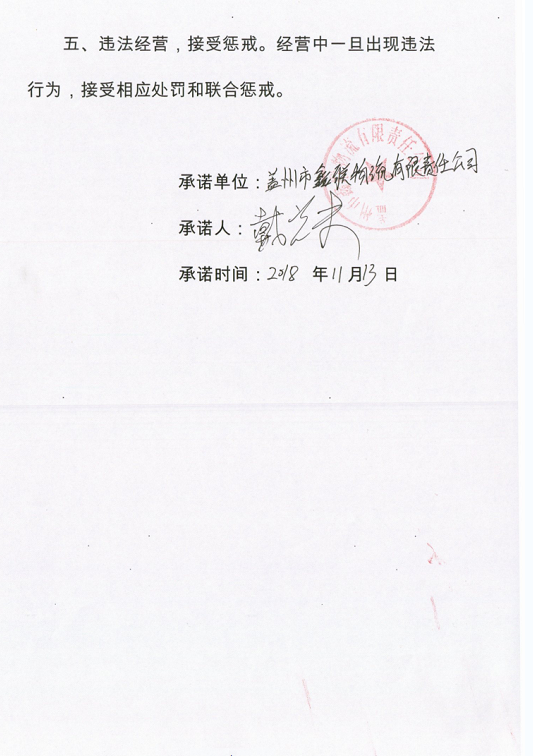 五、违法经营，接受惩戒。经营中一旦出现违法
行为，接受相应处罚和联合惩戒。
物流有限责任
承诺单位：盖州市鑫联物流有限责任公司
承诺人：戴
承诺时间：2018 年 11 月 13 日